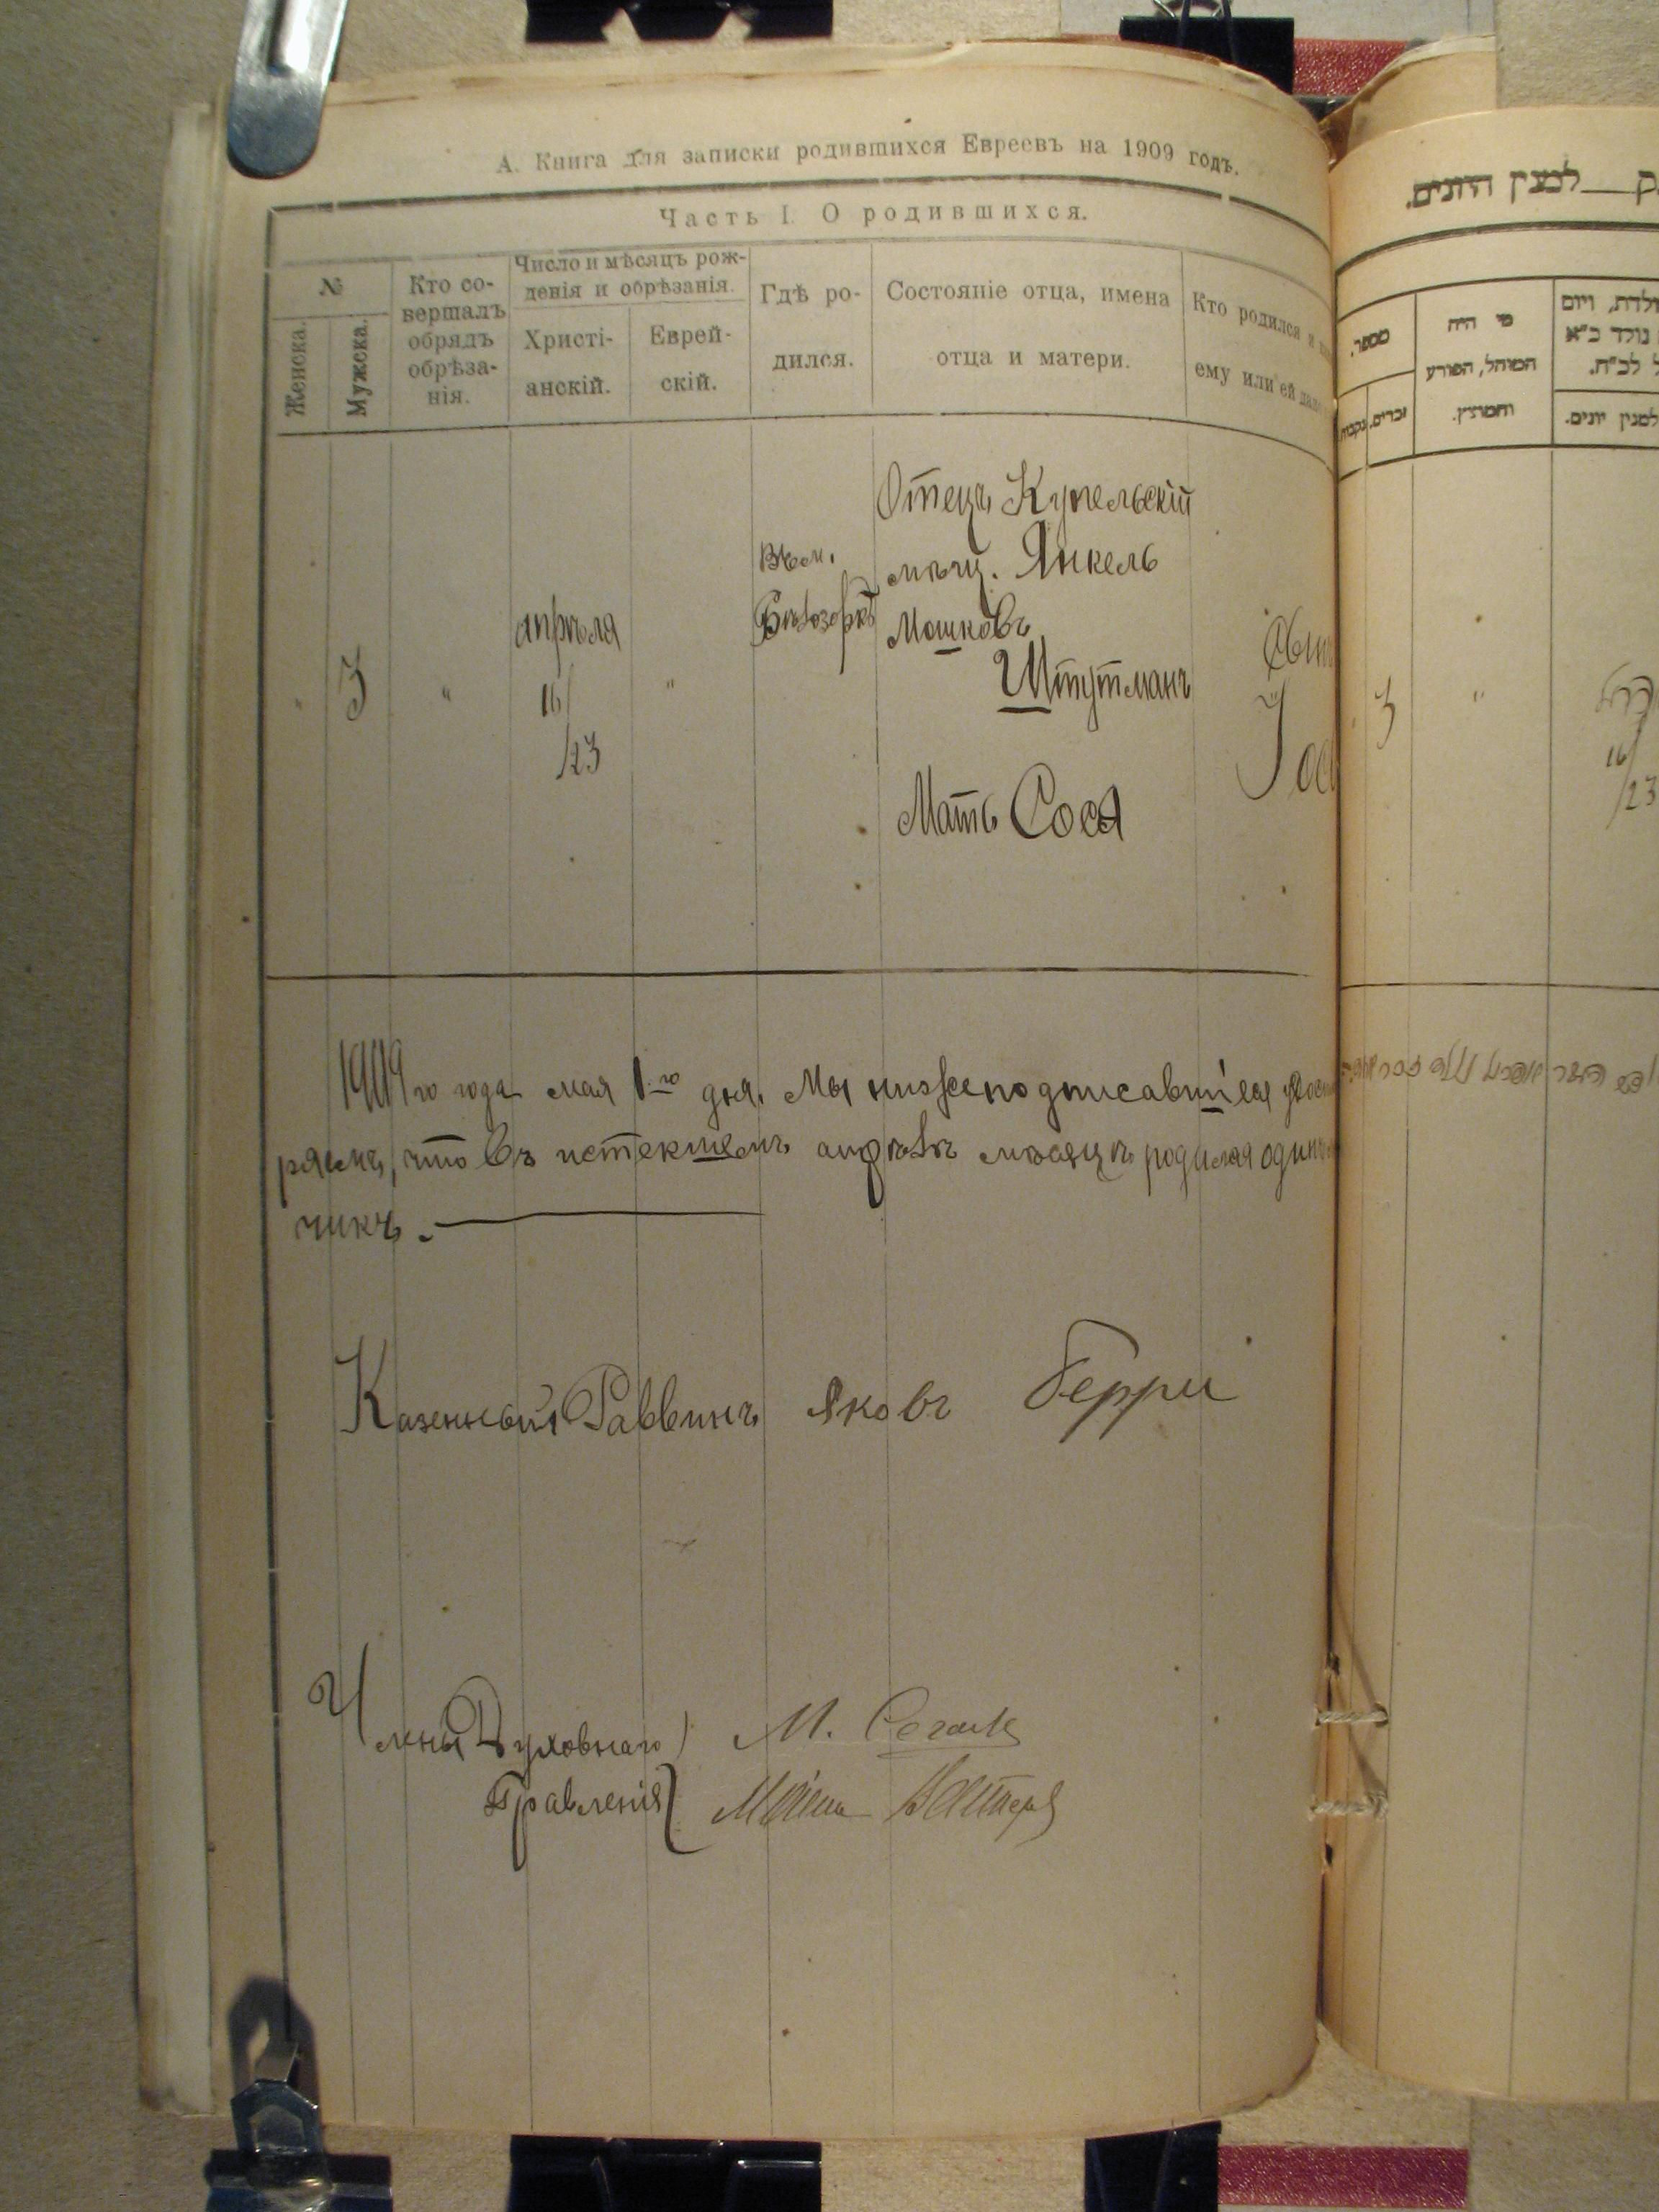 А. Книга для записки родившихся Евреевъ на 1909 годъ.
Часть I. О родившихся.
№
Женска.
Мужска.
Кто со-
вершалъ
обрядъ
обрѣза-
нія.
Число и мѣсяцъ рож-
денія и обрѣзанія.
Христі-
анскій.
Еврей-
скій.
Гдѣ ро-
дился.
Состояніе отца, имена
отца и матери.
Кто родился и
ему или ей
"
3
"
апрѣля
16/
/23
"
Въ м.
Бѣлозоркѣ
Отецъ Купельскій
мѣщ. Янкель
Мошковъ
Штутманъ
Мать Сося
1909 го года мая 1-го дня. Мы нижеподписавшіеся
ряемъ, что въ истекшемъ апрѣлѣ мѣсяцѣ родился одинъ
чикъ.
Казенный Раввинъ Яковъ Берри
Члены Духовнаго М. Сегалъ
Правленія
למנין היונים.
מספר.
זכרים.
נקבות
מי היה
המוהל, הפורע
והמוצץ.
ולדת, ויום
נולד כ"א
לכ"ח.
למנין יונים.
3
"
16/
/23